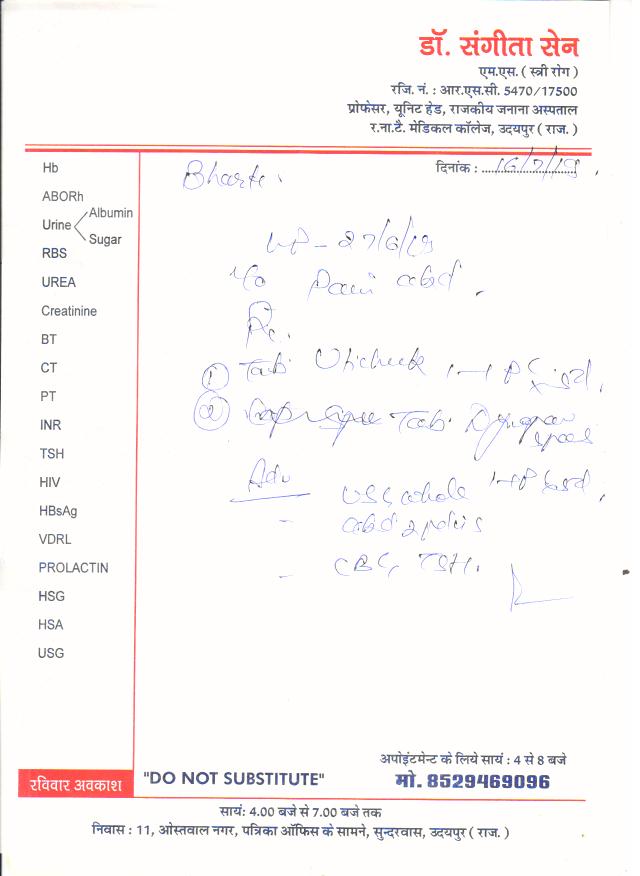 डॉ. संगीता सेन
एम.एस. ( स्त्री रोग )
रजि. नं. : आर.एस.सी. 5470/17500
प्रोफेसर, यूनिट हेड, राजकीय जनाना अस्पताल
र.ना.टै. मेडिकल कॉलेज, उदयपुर ( राज. )
दिनांक : 16/7/19
Hb
ABORh
Urine Albumin
Sugar
RBS
UREA
Creatinine
BT
CT
PT
INR
TSH
HIV
HBsAg
VDRL
PROLACTIN
HSG
HSA
USG
Bharti
LMP - 27/6/19
Pain abd.
① Tab
② Tab.
Adv
USG whole
abd & pelvis
- CBC, TSH.
रविवार अवकाश
"DO NOT SUBSTITUTE"
अपोइंटमेन्ट के लिये सायं : 4 से 8 बजे
मो. 8529469096
सायं: 4.00 बजे से 7.00 बजे तक
निवास : 11, ओस्तवाल नगर, पत्रिका ऑफिस के सामने, सुन्दरवास, उदयपुर ( राज. )